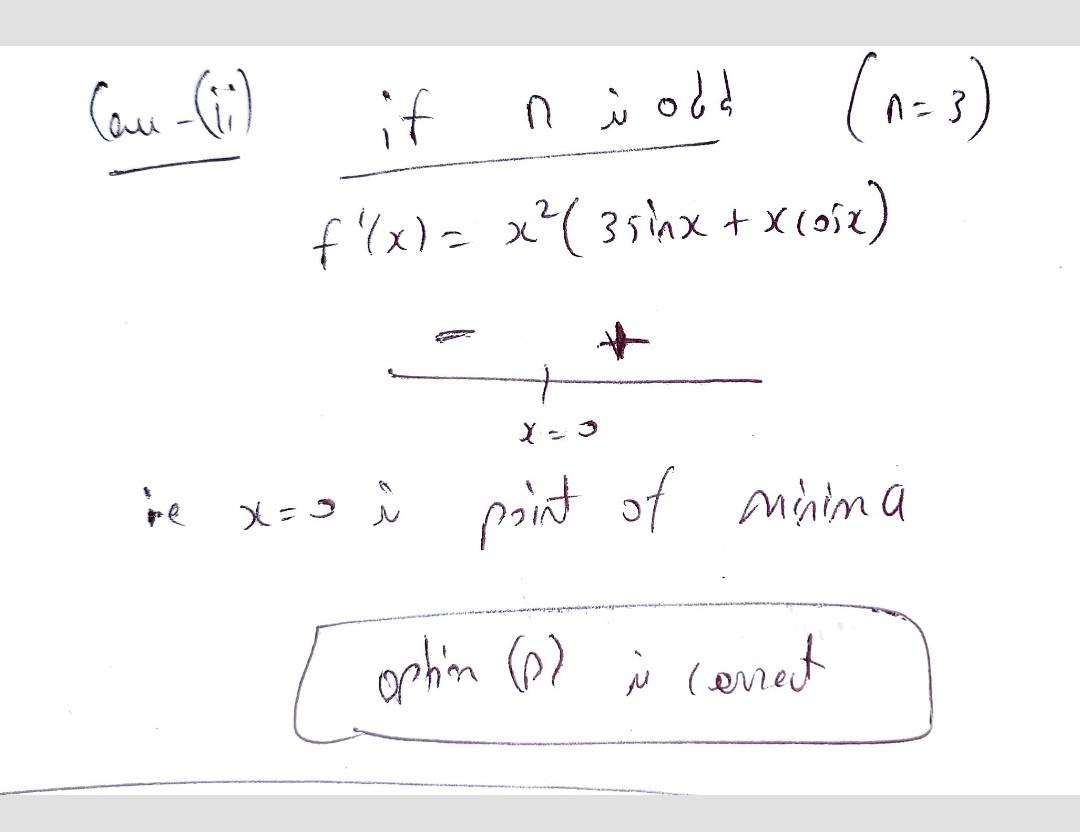 Case-(ii) if n is odd (n=3)
f'(x) = x²(3sinx + xcosx)
- +
x=0
ie x=0 is point of minima
option (D) is correct